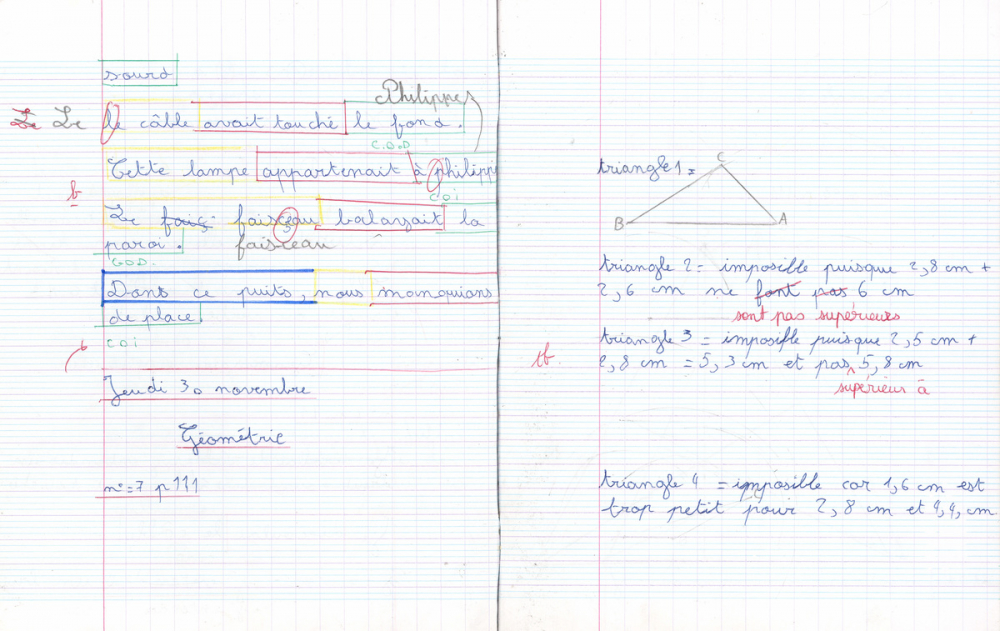 sourd
Philippe
Le Le le câble avait touché le fond.
C.O.D
Cette lampe appartenait à philippe
COI
b
Le faiç faisceau balançait la
paroi. faisceau
COD.
Dans ce puits, nous manquions
de place
COI
Jeudi 30 novembre
Géométrie
n°=7 p111
triangle 1 =
C
B
A
triangle 2 = imposible puisque 2,8 cm +
2,6 cm ne font pas 6 cm
sont pas supérieurs
triangle 3 = imposible puisque 2,5 cm +
tb. 2,8 cm = 5,3 cm et pas 5,8 cm
supérieur à
triangle 4 = imposible car 1,6 cm est
trop petit pour 2,8 cm et 4,4, cm